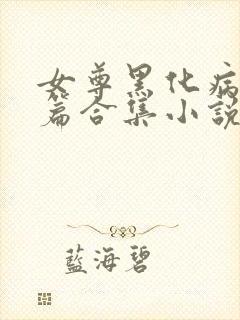 女尊黑化病
篇合集小說
藍海碧